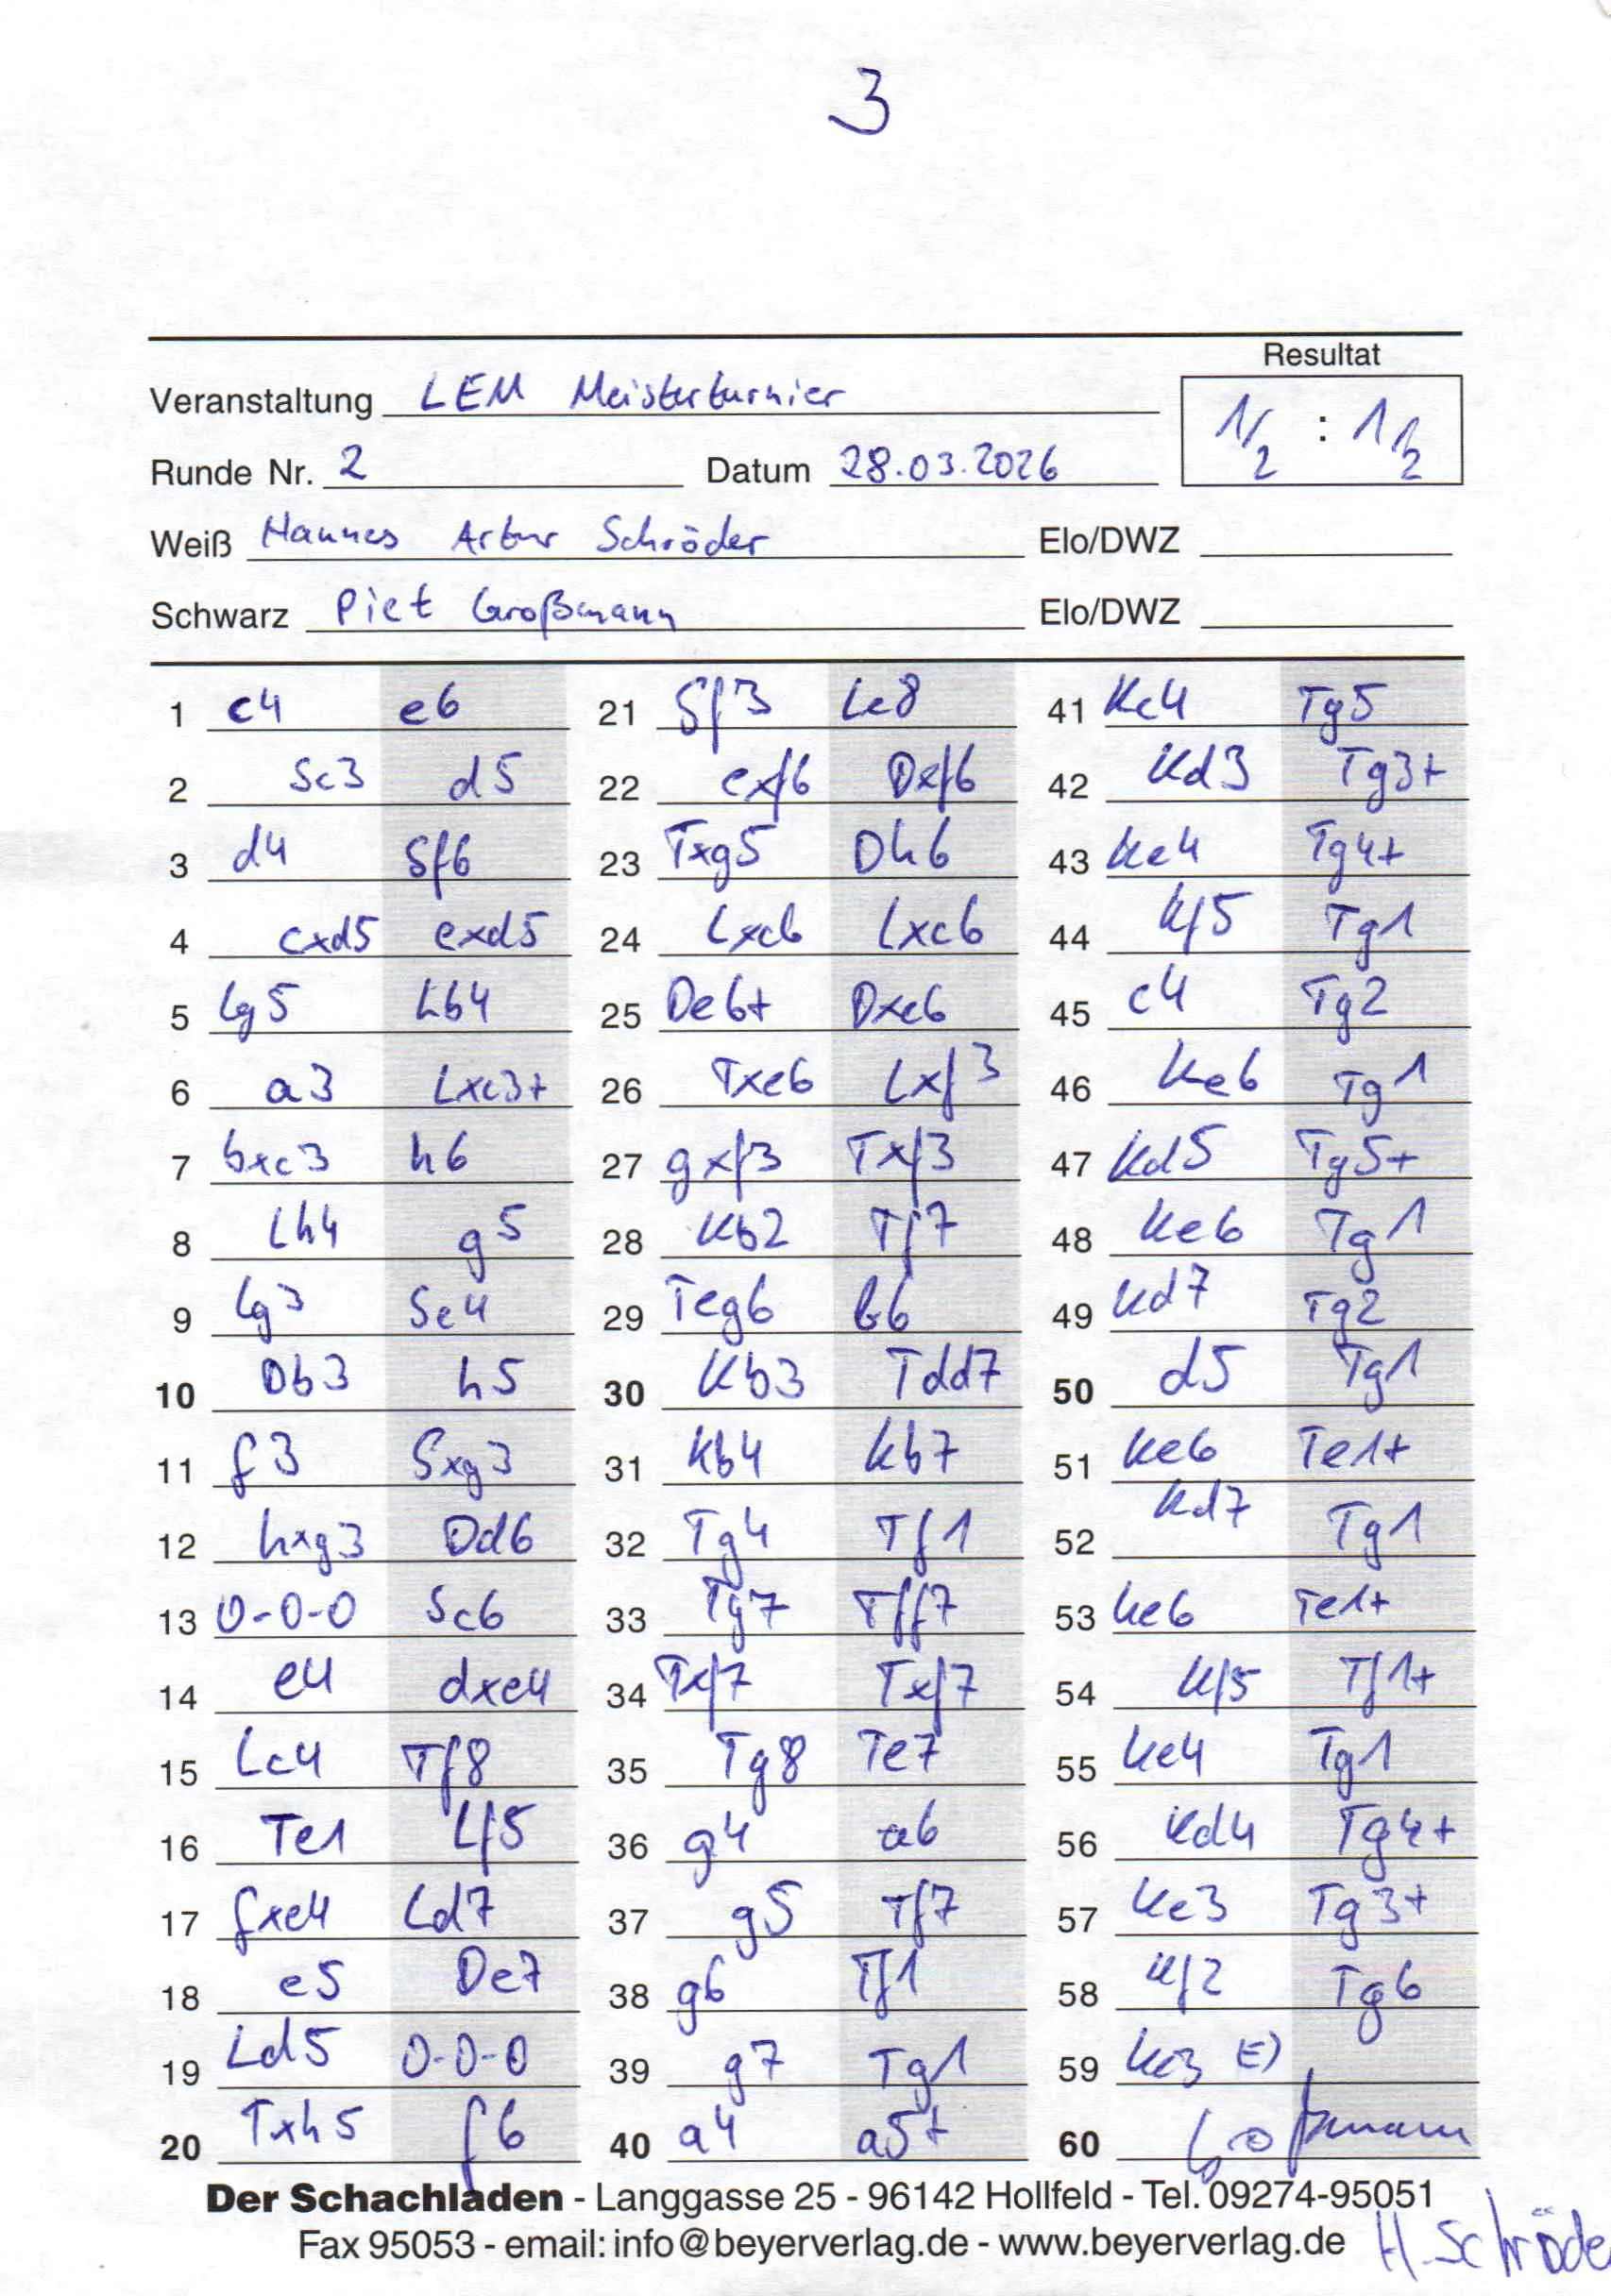 3
Resultat
Veranstaltung LEM Meisterturnier
1/2 : 1/2
Runde Nr. 2 Datum 28.03.2026
Weiß Hannes Artur Schröder Elo/DWZ
Schwarz Piet Großmann Elo/DWZ
1 c4 e6 21 Sf3 Le8 41 Kc4 Tg5
2 Sc3 d5 22 exf6 Dxf6 42 Kd3 Tg3+
3 d4 Sf6 23 Txg5 Dh6 43 Ke4 Tg4+
4 cxd5 exd5 24 Lxc6 Lxc6 44 Kf5 Tg1
5 Lg5 Lb4 25 De6+ Dxe6 45 c4 Tg2
6 a3 Lxc3+ 26 Txe6 Lxf3 46 Ke6 Tg1
7 bxc3 h6 27 gxf3 Txf3 47 Kd5 Tg5+
8 Lh4 g5 28 Kb2 Tf7 48 Ke6 Tg1
9 Lg3 Se4 29 Teg6 b6 49 Kd7 Tg2
10 Db3 h5 30 Kb3 Tdd7 50 d5 Tg1
11 f3 Sxg3 31 Kb4 Kb7 51 Ke6 Te1+
12 hxg3 Dd6 32 Tg4 Tf1 52 Kd7 Tg1
13 0-0-0 Sc6 33 Tg7 Tff7 53 Ke6 Te1+
14 e4 dxe4 34 Txf7 Txf7 54 Kf5 Tf1+
15 Lc4 Tf8 35 Tg8 Te7 55 Ke4 Tg1
16 Te1 Lf5 36 g4 a6 56 Kd4 Tg4+
17 fxe4 Ld7 37 g5 Tf7 57 Ke3 Tg3+
18 e5 De7 38 g6 Tf1 58 Kf2 Tg6
19 Ld5 0-0-0 39 g7 Tg1 59 Ke3 E)
20 Txh5 f6 40 a4 a5+ 60 Großmann
Der Schachladen - Langgasse 25 - 96142 Hollfeld - Tel. 09274-95051
Fax 95053 - email: info@beyerverlag.de - www.beyerverlag.de H. Schröder